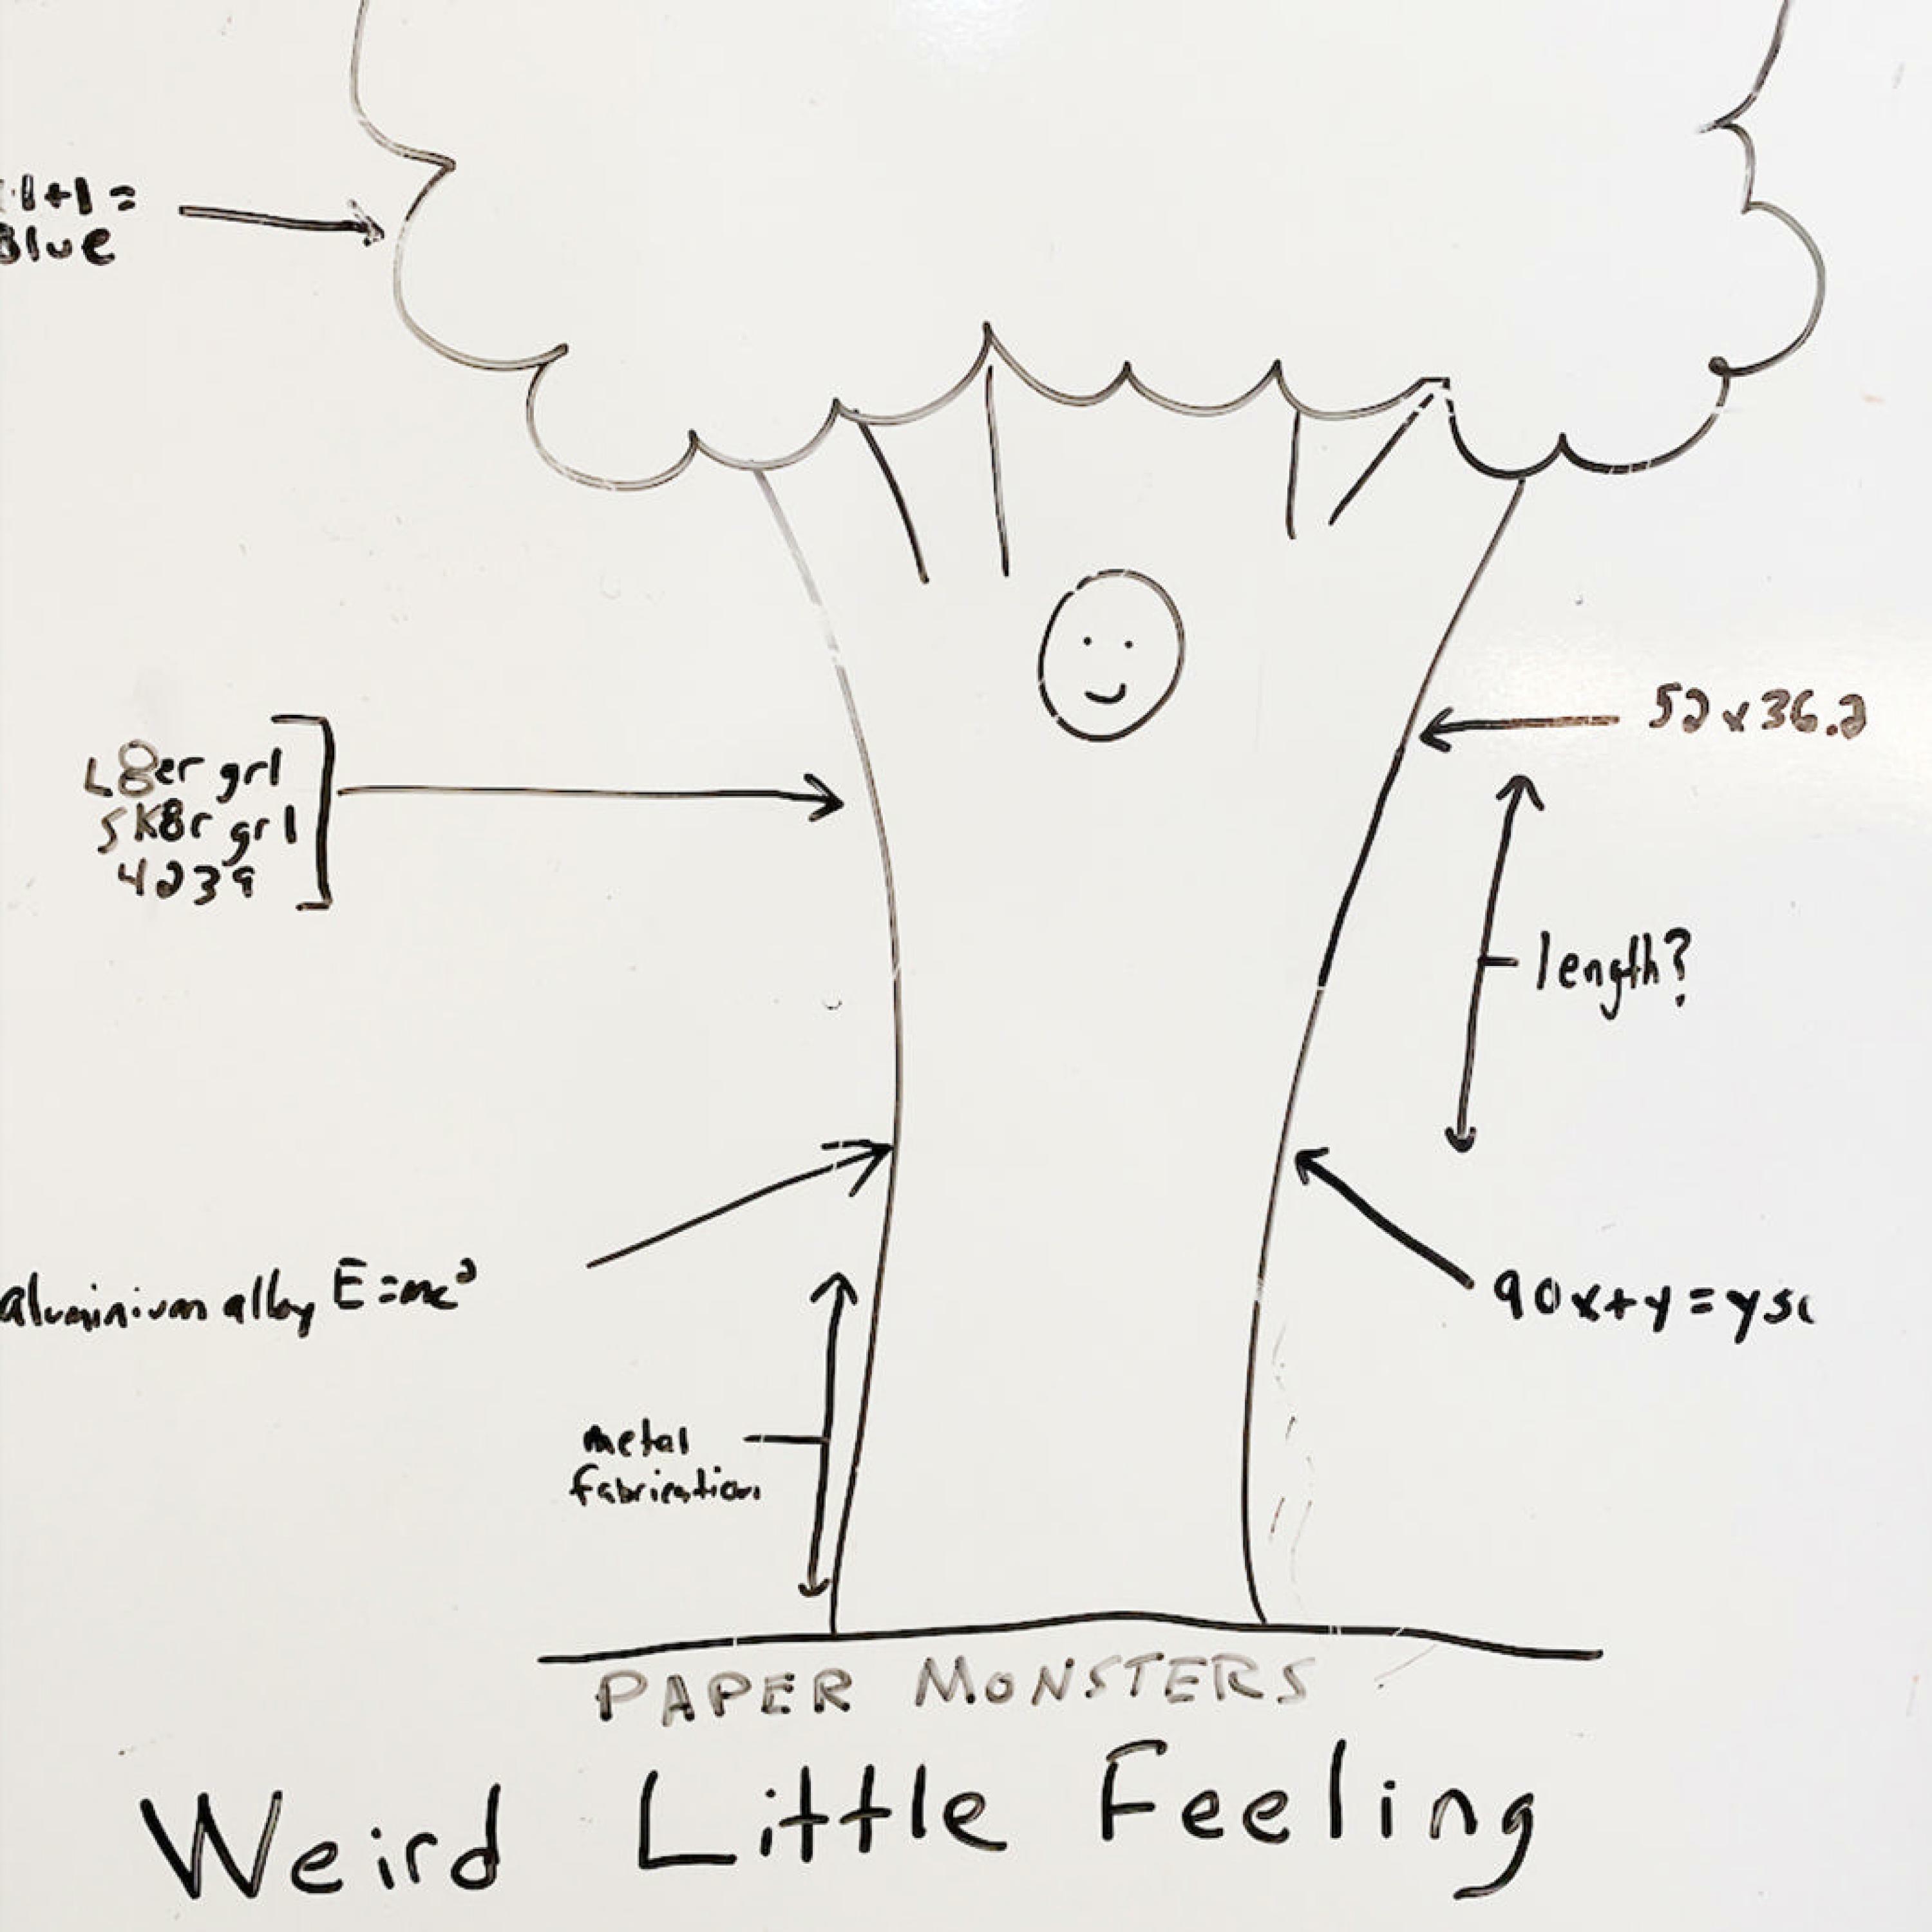 1+1=
Blue
L8er grl
SK8r grl
4239
52x36.2
length?
aluminium alloy E=mc²
90x+y=
metal
fabrication
PAPER MONSTERS
Weird Little Feeling